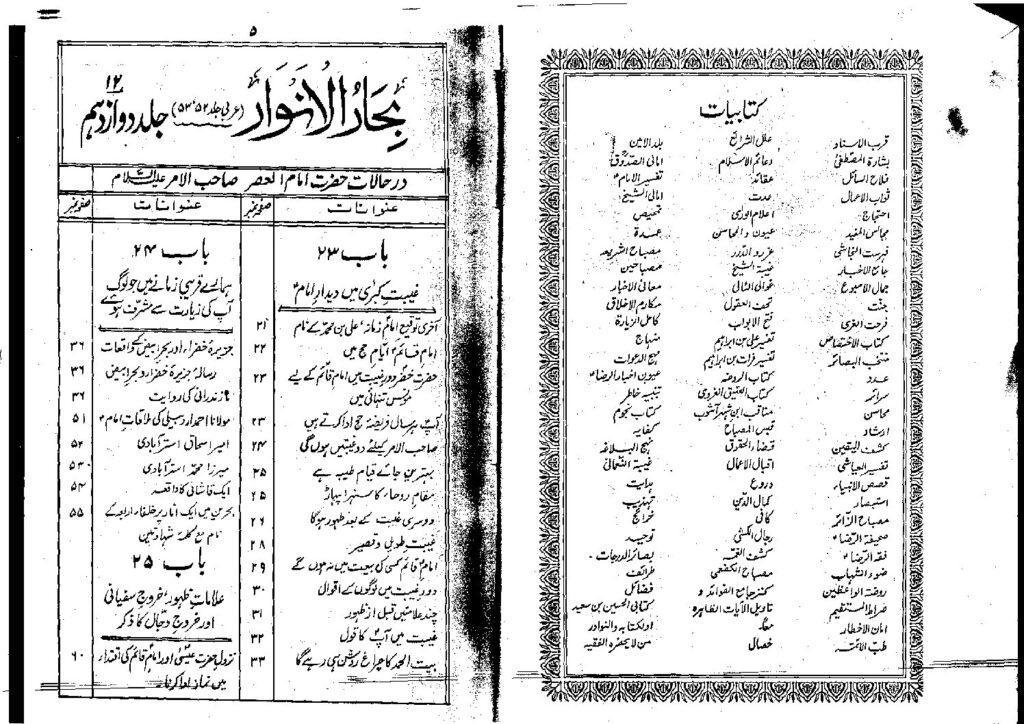 کتابیات
قرب الاسناد
بشارة المصطفیٰ
فلاح السائل
ثواب الاعمال
احتجاج
مجالس المفید
فہرست النجاشی
جامع الاخبار
جمال الاسبوع
جنت
فرحت الغری
کتاب الاختصاص
منتخب البصائر
عدد
سرائر
محاسن
ارشاد
کشف الیقین
تفسیر العیاشی
قصص الانبیاء
استبصار
مصباح الزائر
صحیفة الرضاؑ
فقہ الرضاؑ
ضوء الشہاب
روضة الواعظین
صراط المستقیم
امان الاخطار
طب الائمہ
علل الشرائع
دعائم الاسلام
عقائد
عدت
اعلام الوریٰ
عیون والمحاسن
غرر و الدرر
غیبة الشیخ
غوالی اللئالی
تحف العقول
فتح الابواب
تفسیر علی بن ابراہیم
تفسیر فرات بن ابراہیم
کتاب الروضہ
کتاب العتیق الغروی
مناقب ابن شہر آشوب
قبس المصباح
قضاء الحقوق
اقبال الاعمال
دروع
کمال الدین
کافی
رجال الکشی
کشف الغمہ
مصباح الکفعمی
کنز جامع الفوائد و
تاویل الآیات الظاہرہ
خصال
بلد الامین
امالی الصدوق
تفسیر الامامؑ
امالی الشیخ
تمحیص
عمدة
مصباح الشریعہ
مصباحین
معانی الاخبار
مکارم الاخلاق
کامل الزیارة
منہاج
مہج الدعوات
عیون اخبار الرضاؑ
تنبیہ خاطر
کتاب نجوم
کفایہ
نہج البلاغہ
غیبة النعمانی
ہدایت
تہذیب
خرائج
توحید
بصائر الدرجات
طرائف
فضائل
کتابی الحسین بن سعید
او لکتابہ والنوادر
من لا یحضرہ الفقیہ
۵
بحار الانوار (عربی جلد ۵۲، ۵۳) جلد دوازدہم ۱۲
در حالات حضرت امام العصر صاحب الامر علیہ السلام
عنوانات صفحہ نمبر
باب ۲۳
غیبت کبریٰ میں دیدارِ امامؑ
آخری توقیع امام زمانہؑ علی بن محمد کے نام ۲۱
امام قائمؑ ایّامِ حج میں ۲۲
حضرت خضر دورِ غیبت میں امام قائم کے لیے ۲۳
مونسِ تنہائی ہیں
آپ ہر سال فریضۂ حج ادا کرتے ہیں ۲۳
صاحب الامر کیلئے دو غیبتیں ہوں گی ۲۴
بہترین جائے قیام طیبہ ہے ۲۵
مقامِ روحاء کا سنہرا پہاڑ ۲۵
دوسری غیبت کے بعد ظہور ہوگا ۲۶
غیبت طویل و قصیر ۲۸
امام قائم کسی کی بیعت میں نہ ہوں گے ۲۹
دورِ غیبت میں لوگوں کے اقوال ۳۰
چند علامتیں قبل از ظہور ۳۱
غیبت میں آپ کا قول ۳۲
بیت الحمد کا چراغ روشن ہی رہے گا ۳۳
عنوانات صفحہ نمبر
باب ۲۴
ہمارے قریبی زمانے میں جو لوگ
آپ کی زیارت سے مشرف ہوئے
جزیرۂ خضراء اور بحر ابیض کے واقعات ۳۶
رسالۂ جزیرۂ خضراء و بحر ابیض ۳۶
مازندرانی کی روایت ۳۶
مولانا احمد اردبیلی کی ملاقاتِ امامؑ ۵۱
امیر اسحاق استرآبادی ۵۲
میرزا محمد استرآبادی ۵۳
ایک قاشانی کا واقعہ ۵۴
بحرین میں ایک انار پر خلفاء اربعہ کے ۵۵
نام مع کلمۂ شہادتین
باب ۲۵
علاماتِ ظہور، خروجِ سفیانی
اور خروجِ دجّال کا ذکر
نزولِ حضرت عیسیٰؑ اور امام قائم کی اقتداء ۶۰
میں نماز ادا کرنا